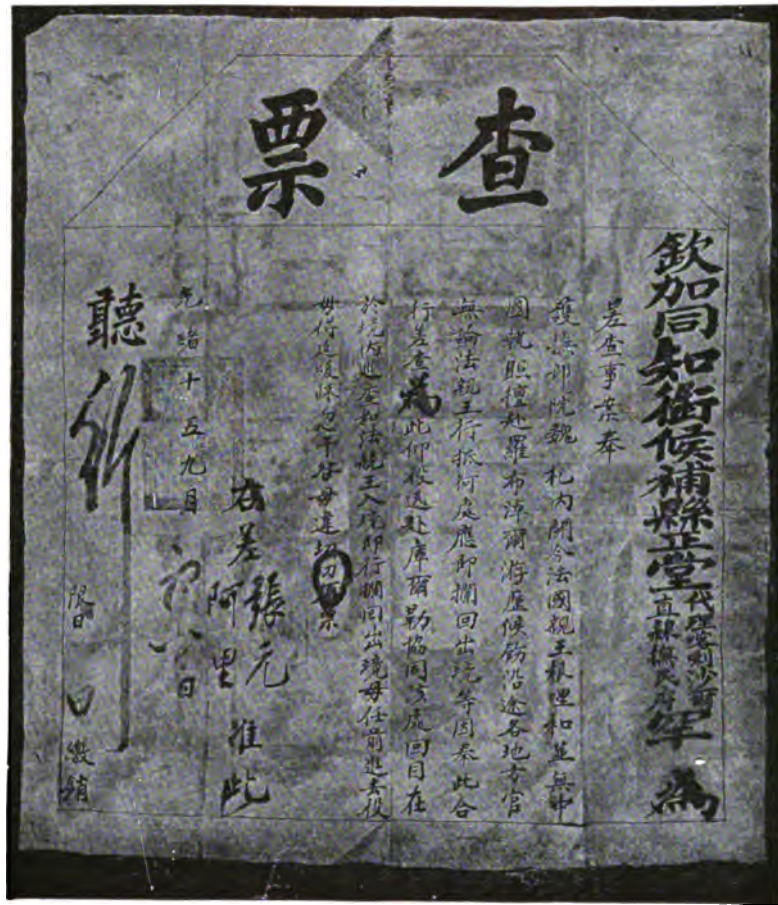 查票
欽加同知銜候補縣正堂代理喀喇沙爾直隸撫民府年 為
差查事案奉
護撫部院魏 札內開令法國親王根理和並無中
國執照擅赴羅布淖爾游歷候飭沿途各地方官
無論法親王行抵何處應即攔回出境等因奉此合
行差查為此仰役迅赴庫爾勒協同該處回目在
於境內迎查如法親王入境即行攔回出境毋任前進去役
毋得遲緩 干咎毋違切切須票
右差張元
阿里 准此
光緒十五九月
初八日
聽
限 日繳銷